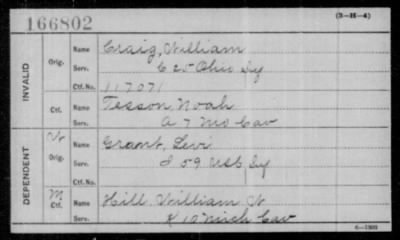 166802
(3-H-4)
INVALID
Orig.
Name Craig, William
Serv. C 25 Ohio Iy
Ctf. No. 117071
Ctf.
Name Tesson, Noah
Serv. A 7 Mo Cav
DEPENDENT
Orig.
Name Grant, Levi
Serv. I 59 USC Iy
Ctf. No.
M Ctf.
Name Hill, William
Serv. K 10 Mich Cav